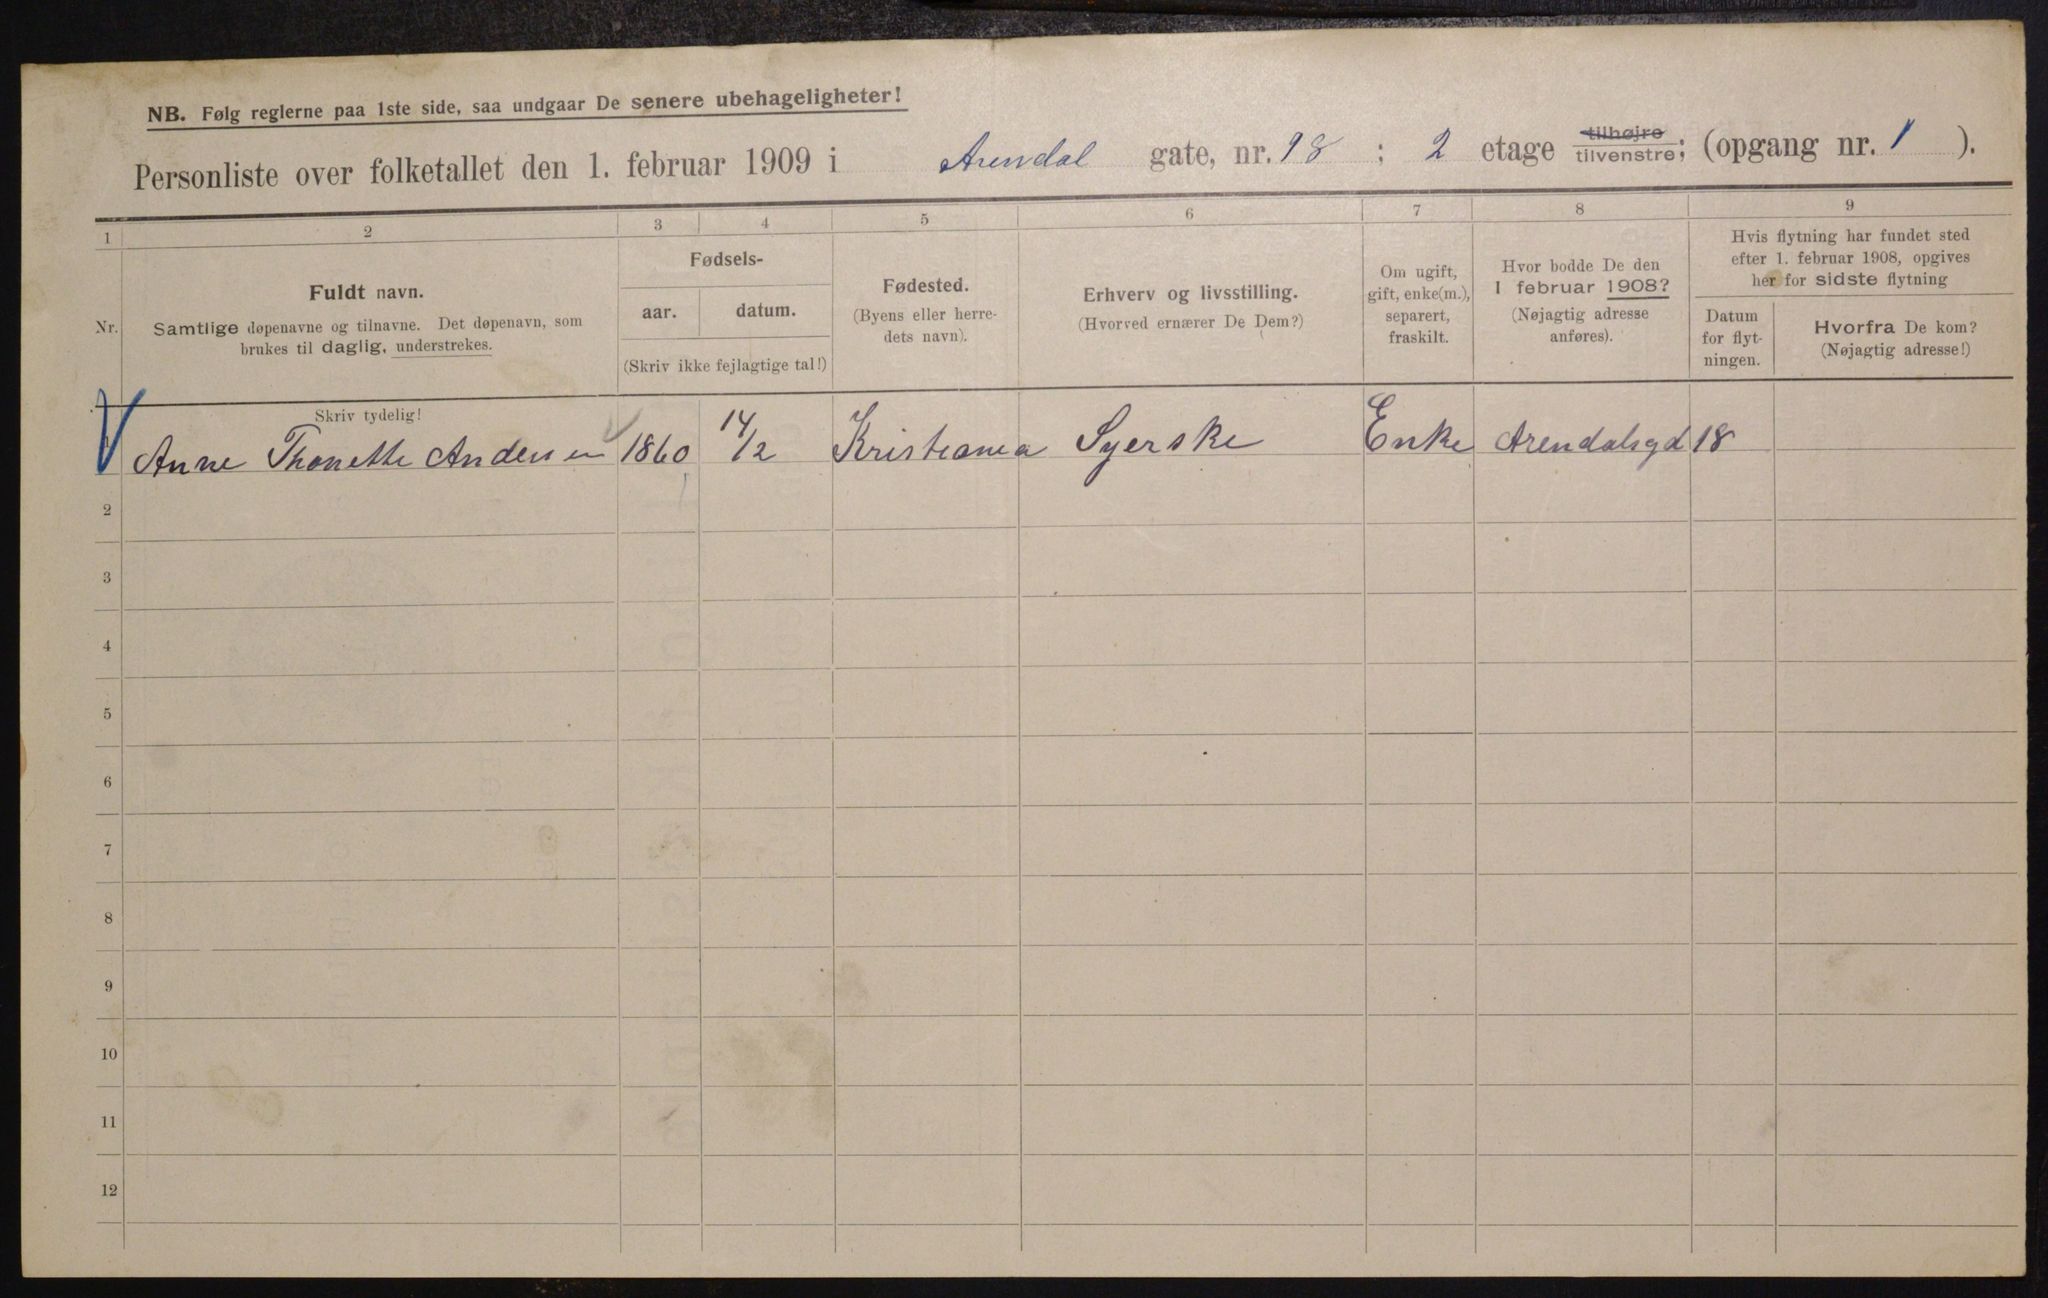 NB. Følg reglerne paa 1ste side, saa undgaar De senere ubehageligheter!
Personliste over folketallet den 1. februar 1909 i Arendal gate, nr. 18 ; 2 etage tilhøjre tilvenstre; (opgang nr. 1 ).
1 2 3 4 5 6 7 8 9
Nr.
Fuldt navn.
Samtlige døpenavne og tilnavne. Det døpenavn, som
brukes til daglig, understrekes.
Fødsels-
aar. datum.
(Skriv ikke fejlagtige tal!)
Fødested.
(Byens eller herre-
dets navn).
Erhverv og livsstilling.
(Hvorved ernærer De Dem?)
Om ugift,
gift, enke(m.),
separert,
fraskilt.
Hvor bodde De den
1 februar 1908?
(Nøjagtig adresse
anføres).
Hvis flytning har fundet sted
efter 1. februar 1908, opgives
her for sidste flytning
Datum
for flyt-
ningen.
Hvorfra De kom?
(Nøjagtig adresse!)
Skriv tydelig!
Anne Thonette Andersen 1860 14/2 Kristiania Syerske Enke Arendalsgd 18
2
3
4
5
6
7
8
9
10
11
12